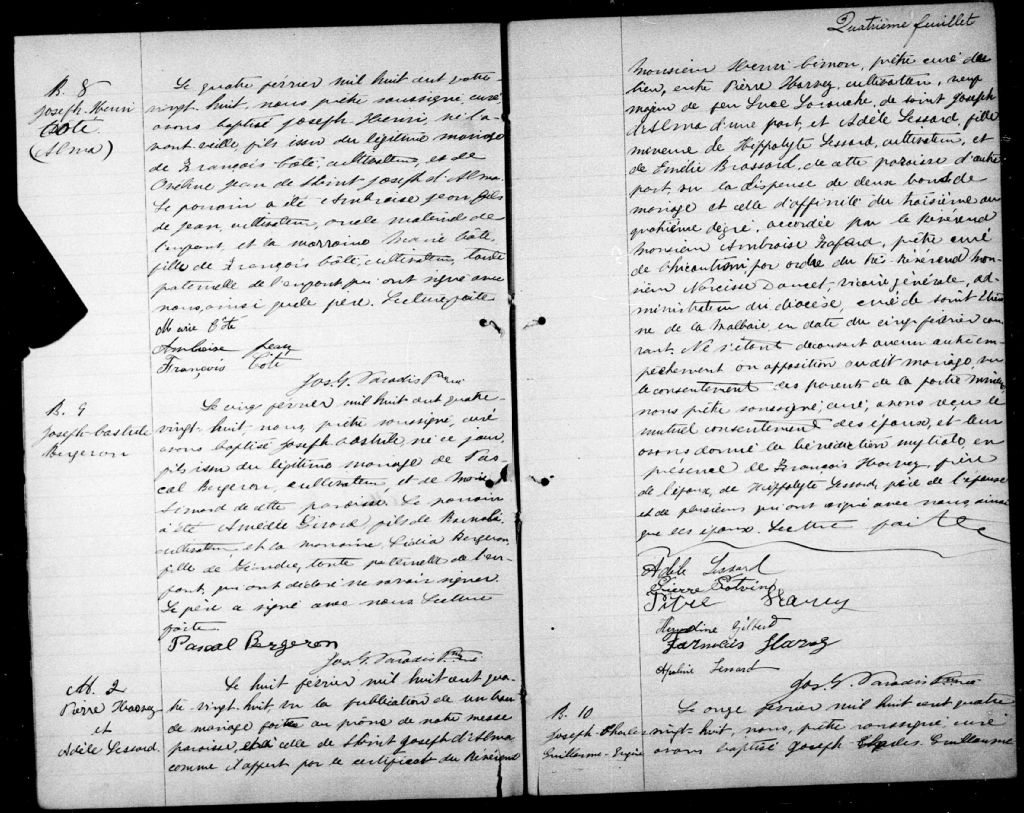 B. 8
Joseph-Henri
Côté
(Alma)
Le quatre février mil huit cent quatre-
vingt-huit, nous prêtre soussigné, curé,
avons baptisé Joseph Henri, né l'a-
vant veille, fils issu du légitime mariage
de François Côté, cultivateur, et de
Jean de Saint Joseph d'Alma.
Le parrain a été Ambroise Jean, fils
de Jean, cultivateur, oncle maternel de
l'enfant, et la marraine Marie Côté,
fille de François Côté, cultivateur, tante
paternelle de l'enfant, qui ont signé avec
nous, ainsi que le père. Lecture faite
Marie Côté
Ambroise Jean
François Côté
Jos. G. Paradis Ptre
B. 9
Joseph-Castule
Bergeron
Le cinq février mil huit cent quatre-
vingt-huit, nous, prêtre soussigné, curé
avons baptisé Joseph Castule, né ce jour,
fils issu du légitime mariage de Pas-
cal Bergeron, cultivateur, et de Marie
Simard de cette paroisse. Le parrain
a été Amédée Girard, fils de Barnabé,
cultivateur, et la marraine, Lidia Bergeron,
fille de tante paternelle de l'en-
fant, qui ont déclaré ne savoir signer.
Le père a signé avec nous. Lecture
faite
Pascal Bergeron
Jos. G. Paradis Ptre
M. 2
Pierre Harvey
et
Adèle Lessard
Le huit février mil huit cent qua-
tre-vingt-huit vu la publication de un ban
de mariage faite au prône de notre messe
paroissiale, et à celle de Saint Joseph d'Alma
comme il appert par le certificat du Révérend
Quatrième feuillet
Monsieur Henri Cimon, prêtre curé du
lieu, entre Pierre Harvey, cultivateur, veuf
majeur de feu Luce Larouche, de saint Joseph
d'Alma d'une part, et Adèle Lessard, fille
mineure de Hippolyte Lessard, cultivateur, et
de Emilie Brassard, de cette paroisse d'autre
part, vu la dispense de deux bans de
mariage et celle d'affinité du troisième au
quatrième dégré, accordée par le Révérend
Monsieur Ambroise Fafard, prêtre curé
de Chicoutimi par ordre du Très-Révérend Mon-
sieur Narcisse Doucet, vicaire général, ad-
ministrateur du diocèse, curé de saint Etien-
ne de la Malbaie en date du cinq février cou-
rant. Ne s'étant découvert aucun autre em-
pêchement ou opposition au dit mariage, vu
le consentement des parents de la partie mineure,
nous prêtre soussigné, curé, avons reçu le
mutuel consentement des époux, et leur
avons donné la bénédiction nuptiale en
présence de François Harvey, frère
de l'époux, de Hippolyte Lessard, père de l'épouse
et de plusieurs qui ont signé avec nous, ainsi
que les époux. Lecture faite
Adèle Lessard
Pierre Potvin
Pitre Harvey
Gilbert
Harvey
Lessard
Jos. G. Paradis Ptre
B. 10
Joseph-Charles
Guillaume-Eugène
Le onze février mil huit cent quatre
vingt-huit, nous, prêtre soussigné curé
avons baptisé Joseph Charles Guillaume